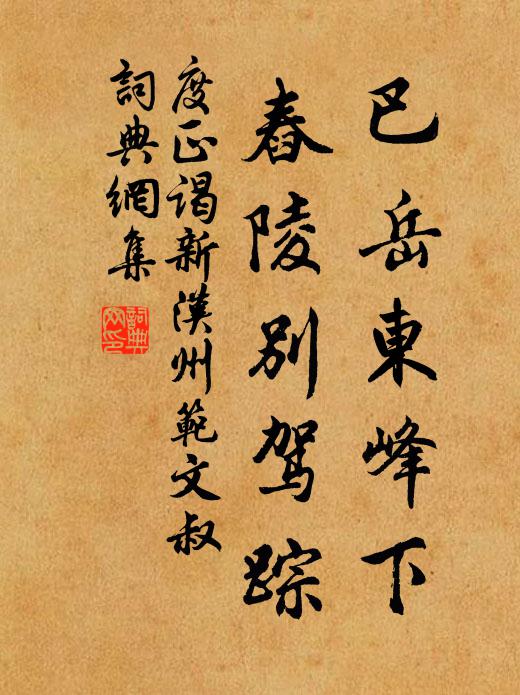 巴岳東峰下
舂陵別駕踪
度正謁新漢州範文叔
詞典網集
詞典網印